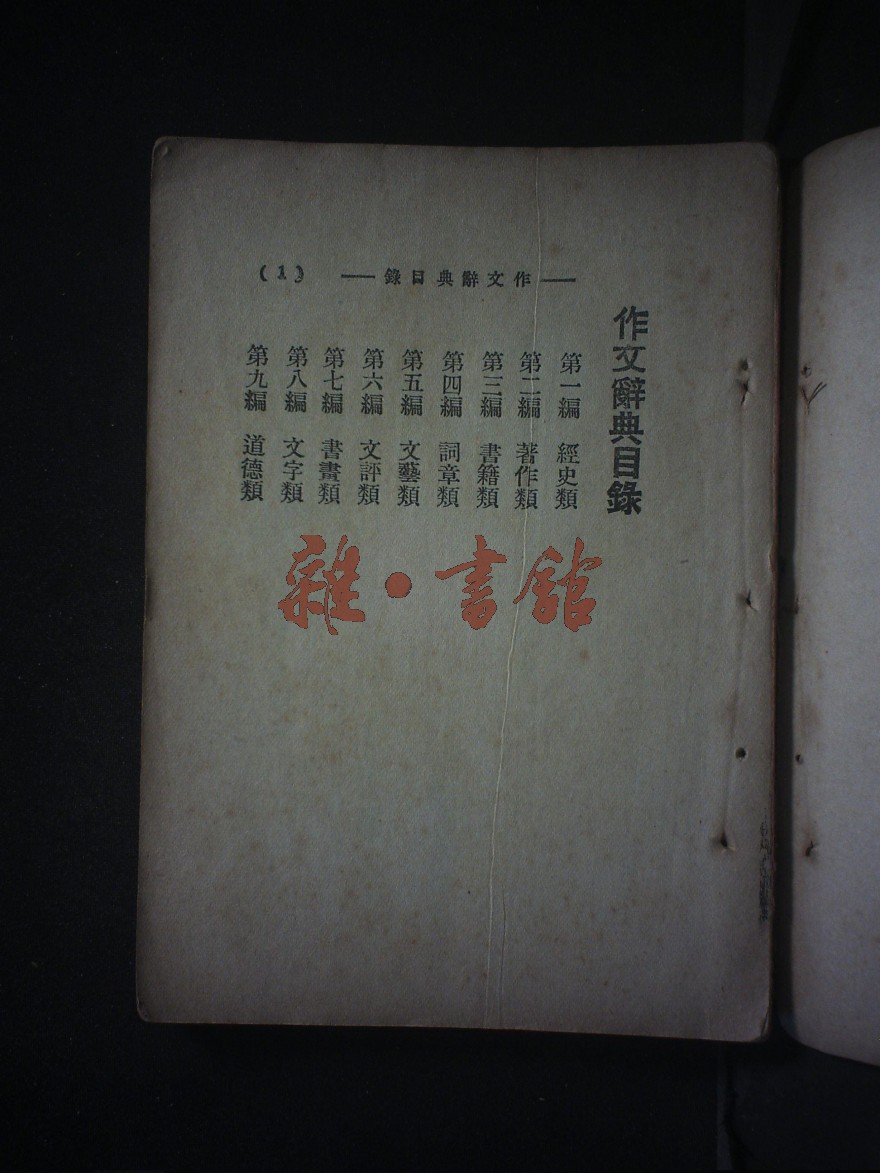 作文辭典目錄
(1)
作文辭典目錄
第一編 經史類
第二編 著作類
第三編 書籍類
第四編 詞章類
第五編 文藝類
第六編 文評類
第七編 書畫類
第八編 文字類
第九編 道德類
雜·書館